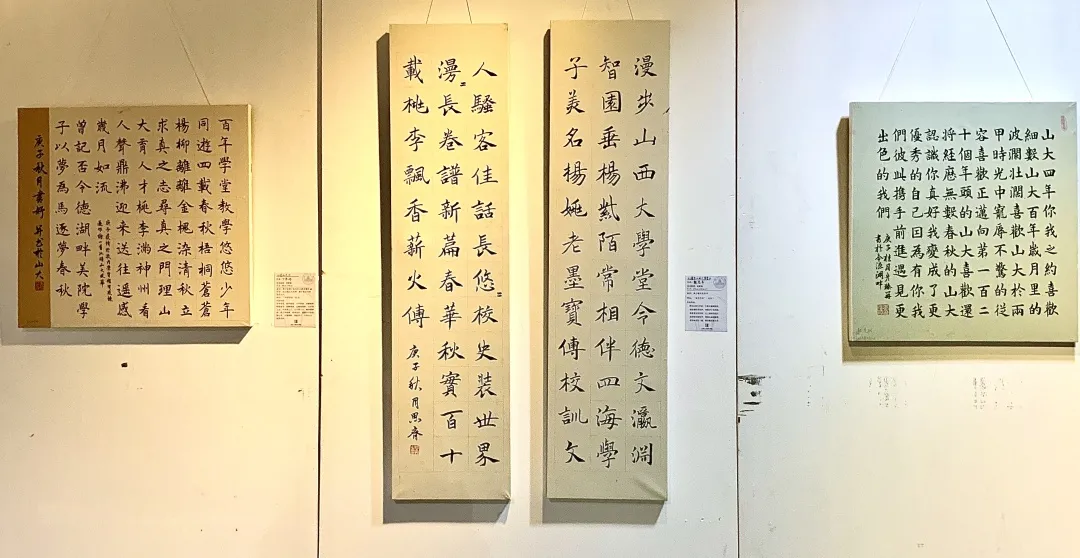 山大四年你我之約喜歡
細數山大百年歲月里的
波瀾壯闊喜歡山大於兩
甲時光中寵辱不驚的從
容喜歡正邁向第一百二
十個年頭的山大喜歡還
將經歷無數春秋的山大
認識你真好我變成了更
優秀的自己因為有你我
們彼此携手前進遇見更
出色的我們
庚子桂月
書於令德湖畔
漫步山西大學堂令德文瀛渊
智園垂楊紫陌常相伴四海學
子美名楊姚老墨寶傳校訓文
人騷客佳話長悠〻校史裝世界
漫〻長卷譜新篇春華秋實百十
載桃李飄香薪火傳
庚子秋月思齊
百年學堂教學悠悠少年
同遊四載春秋梧桐蒼蒼
楊柳離離金楓染清秋立
求真之志尋真之門理山
大育人才桃李滿神州看
人聲鼎沸迎来送往遥感
歲月如流
曾記否令德湖畔美院學
子以夢為馬逐夢春秋
庚子秋月書於山大